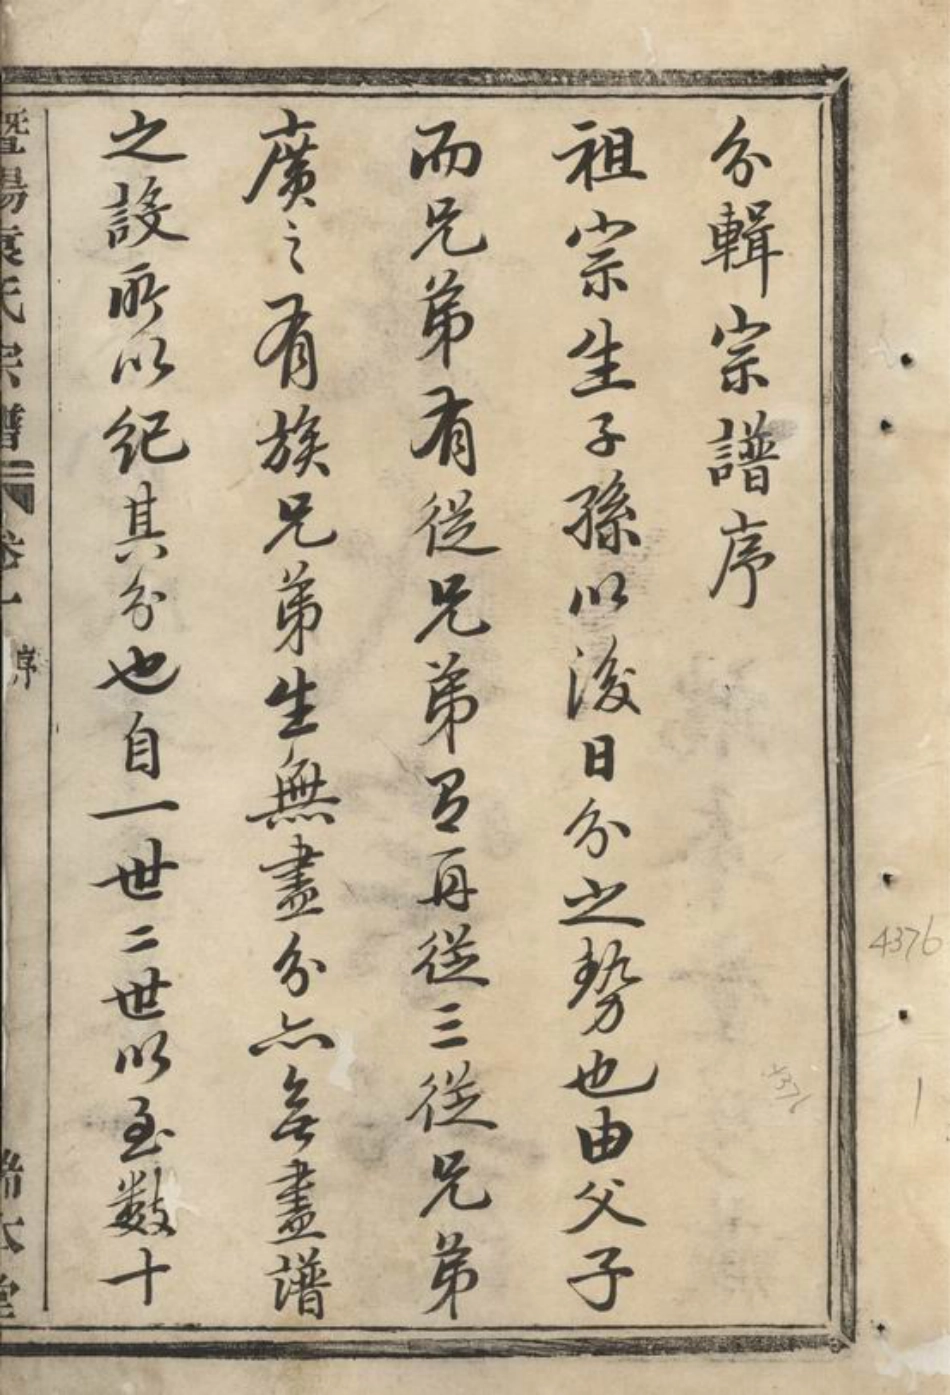 分輯宗譜序
祖宗生子孫以後日分之勢也由父子
而兄弟有從兄弟有再從三從兄弟
廣之有族兄弟生無盡分亦無盡譜
之設所以紀其分也自一世二世以至數十
暨陽袁氏宗譜 卷一 序 堂
4376